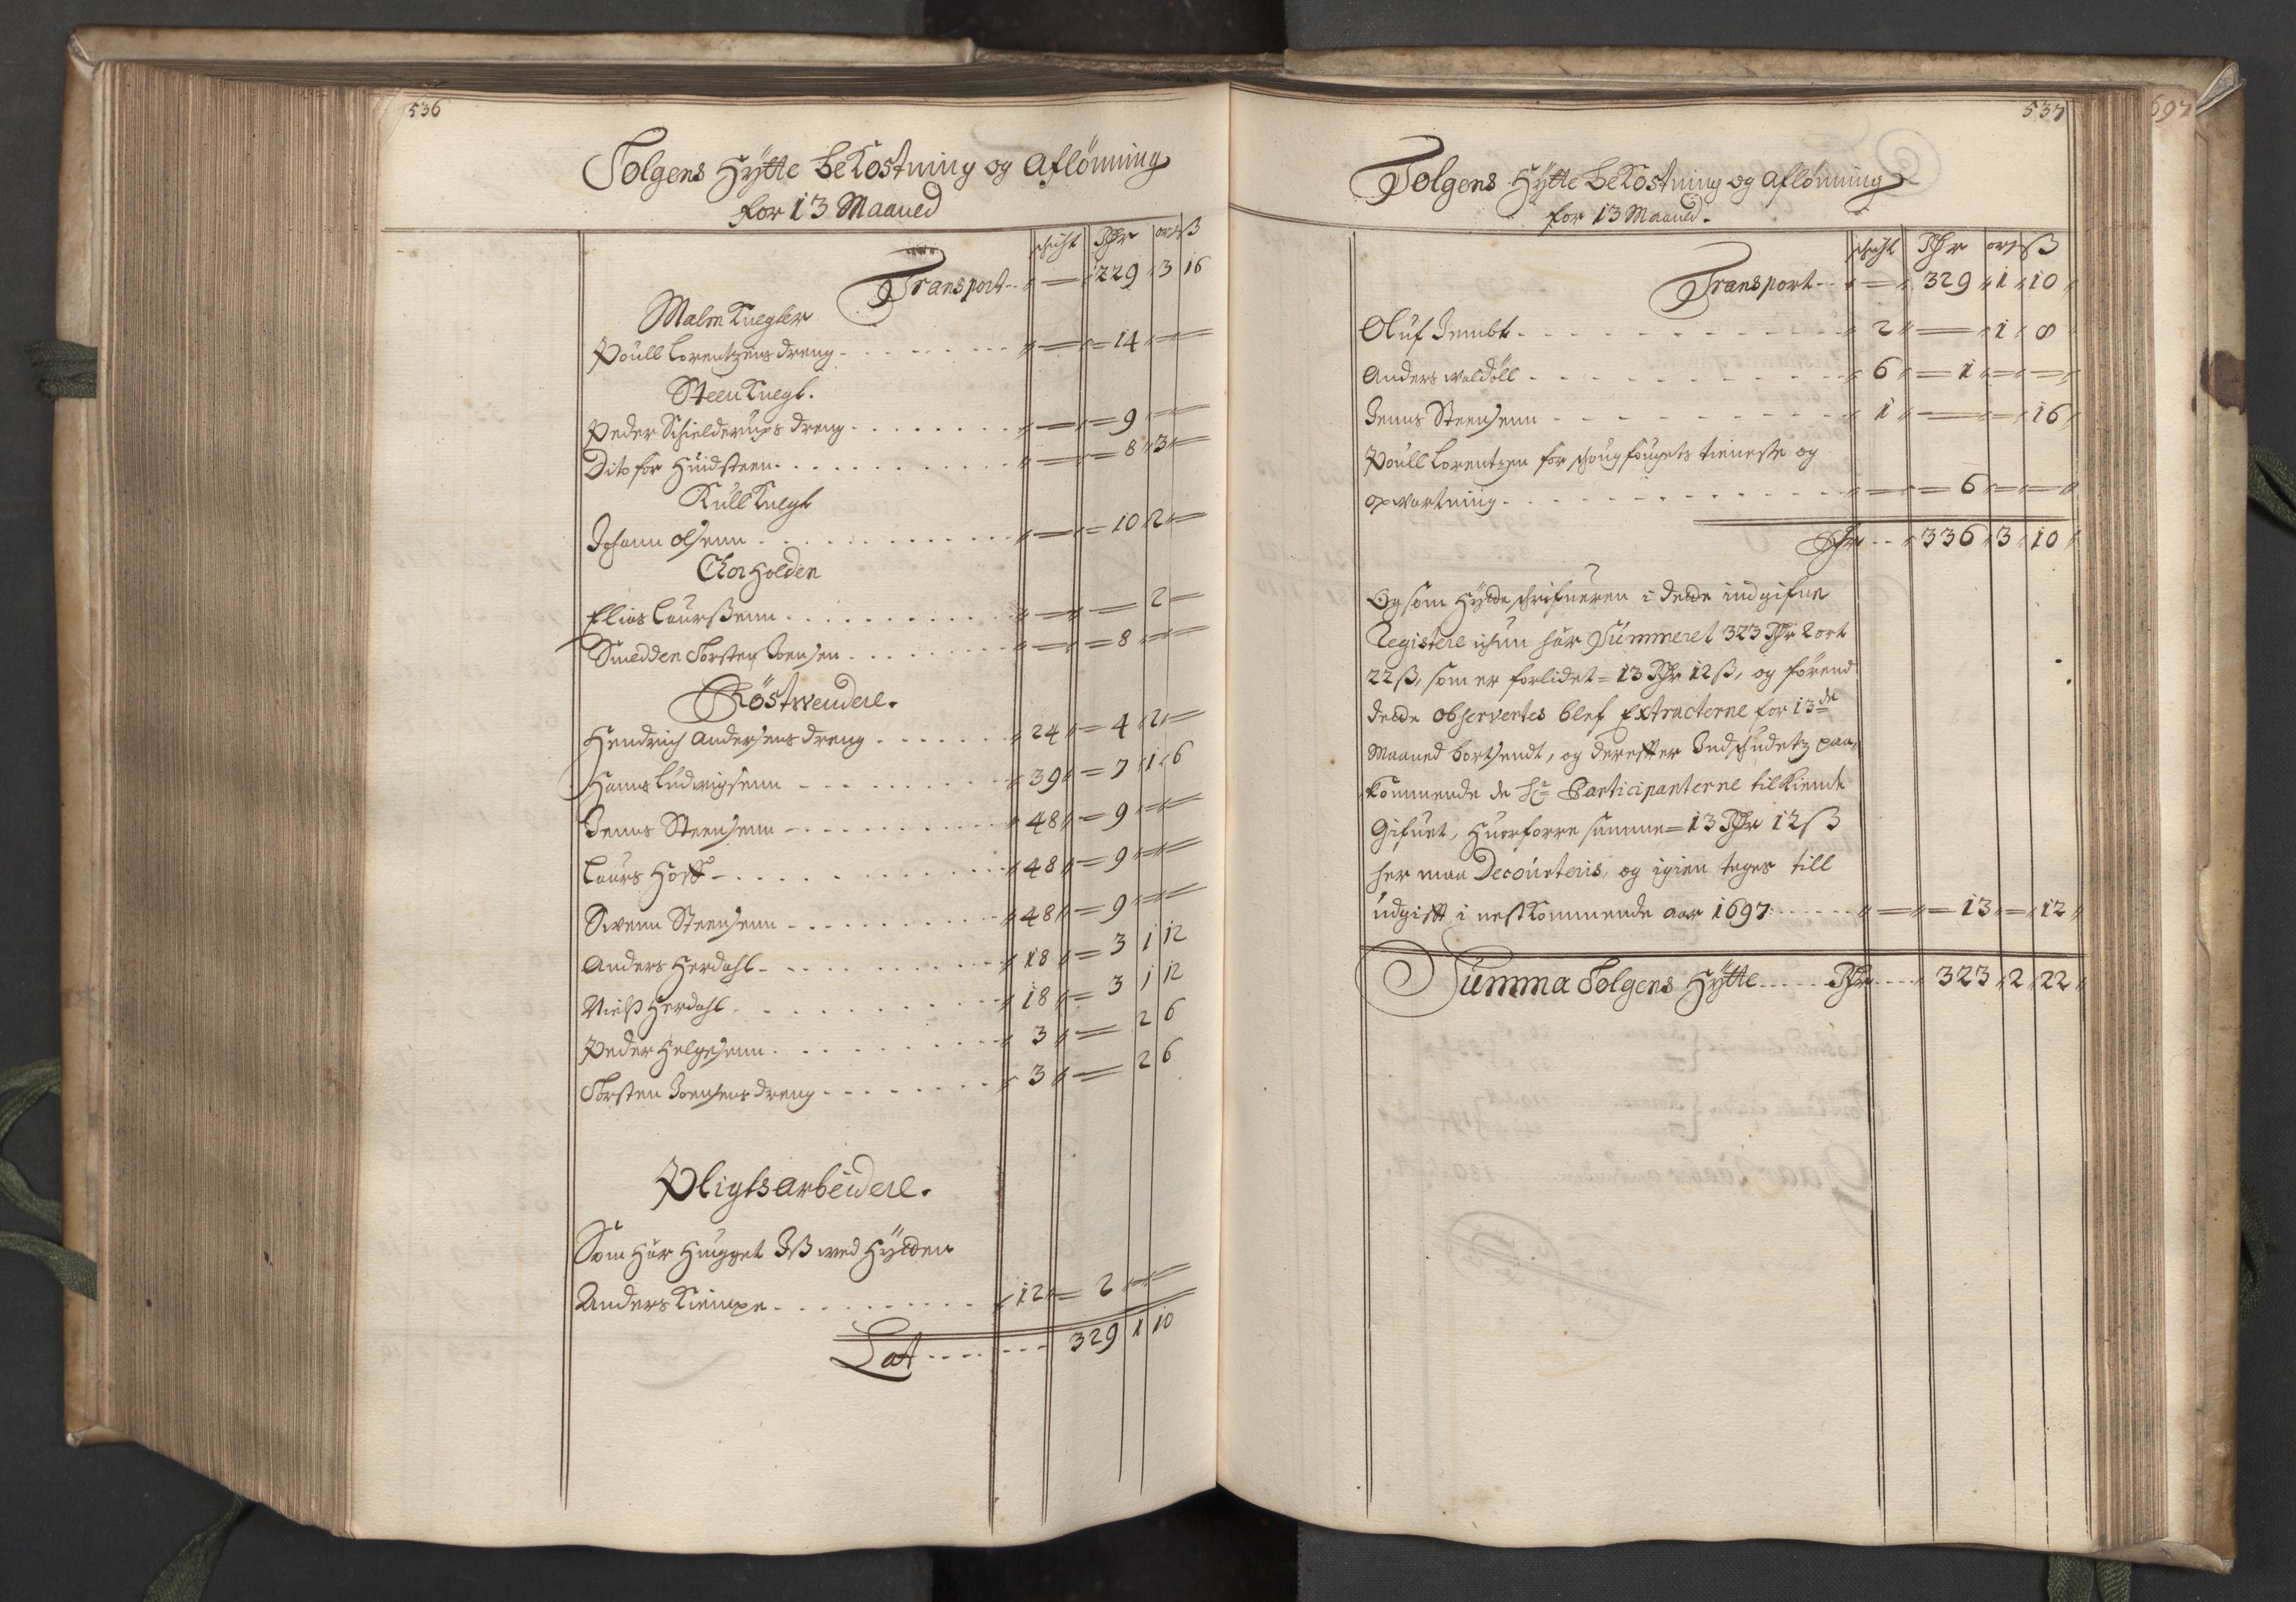 536
Tolgens Hÿtte beKostning og Aflönning
for 13 Maaned
schicht Rdr ort ß
Transport - - 229 3 16
Malm Knegter
Poull Lorentzens dreng - 14
Steen Knegt.
Peder Schielderups dreng - 9
Dito for Huidsteen - 8 3
Kull Knegt
Johann Olsenn - 10 2
Chor Holden
Elias Laurßenn - 2
Smedden Torsten Joensen - 8
Röstwendere.
Hendrich Andersens dreng - 24 4 2
Hanns Ludwigsenn - 39 7 1 6
Jenns Steensenn - 48 9
Laurs Hoff - 48 9
Swenn Steensenn - 48 9
Anders Herdahl - 18 3 1 12
Nielß Herdahl - 18 3 1 12
Peder Helgesenn - 3 2 6
Torsten Joensens dreng - 3 2 6
Pligtsarbeidere.
Som Har Hugget Iß wed Hÿtden
Anders Kiempe - 12 2
Lat - 329 1 10
537
Tolgens Hÿtte beKostning og Aflönning
for 13 Maaned.
schicht Rdr ort ß
Transport - - 329 1 10
Oluf Jembt - 2 1 8
Anders Woldöll - 6 1
Jenns Steensenn - 1 16
Poull Lorentzen for schougfougets tieneste og
opvartning - 6
Rdr - - 336 3 10
Og som Hÿtde schrifueren i dette indgifne
Registere ichun har Summeret 323 Rdr 2 ort
22 ß, som er forlidet = 13 Rdr 12 ß, og förend
dette observertes blef Extracterne for 13de
Maaned bortsendt, og derefter Indschudetz paa,
Kommende de Hr. Participanterne tilKiende
Gifuet, Huorforre samme = 13 Rdr 12 ß
her maa Decourteris, og igien tages till
udgifft i nestKommende aar 1697 - 13 12
Summa Tolgens Hÿtte - Rdr - 323 2 22
697